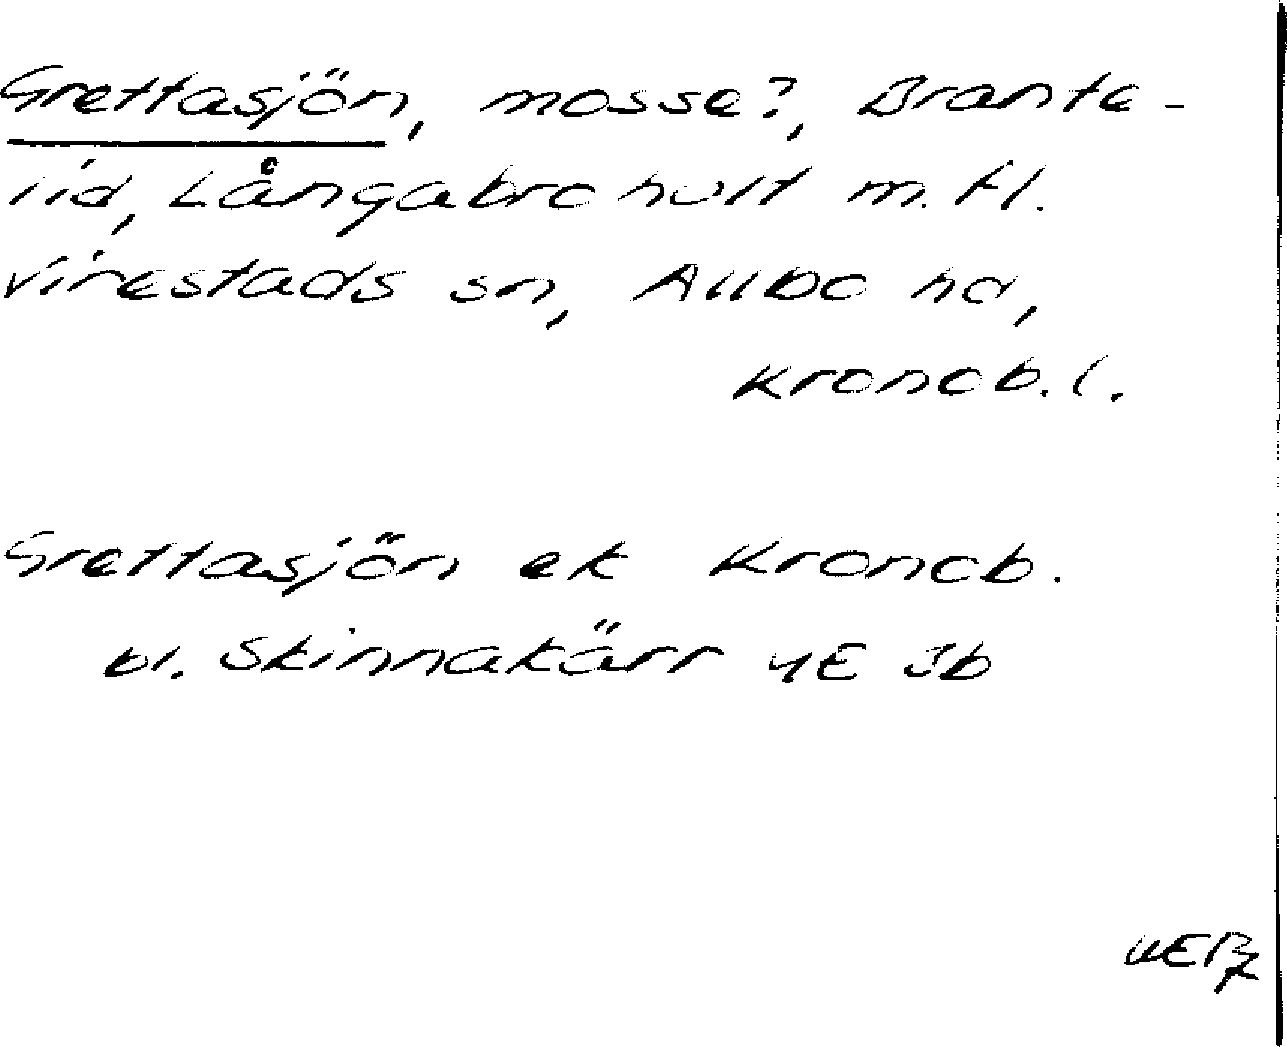 Grettasjön, mosse?, Brante-
lid, Långabrohult m.fl.
Virestads sn, Allbo hd,
Kronob.l.
Grettasjön ek Kronob.
bl. Skinnakärr 4E 3b